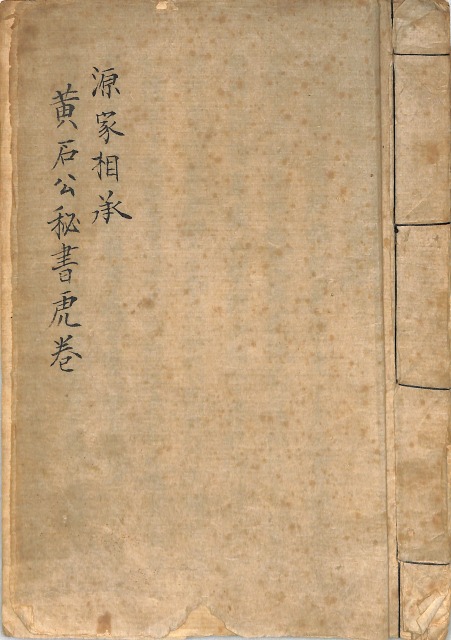 源家相承
黄石公秘書虎巻